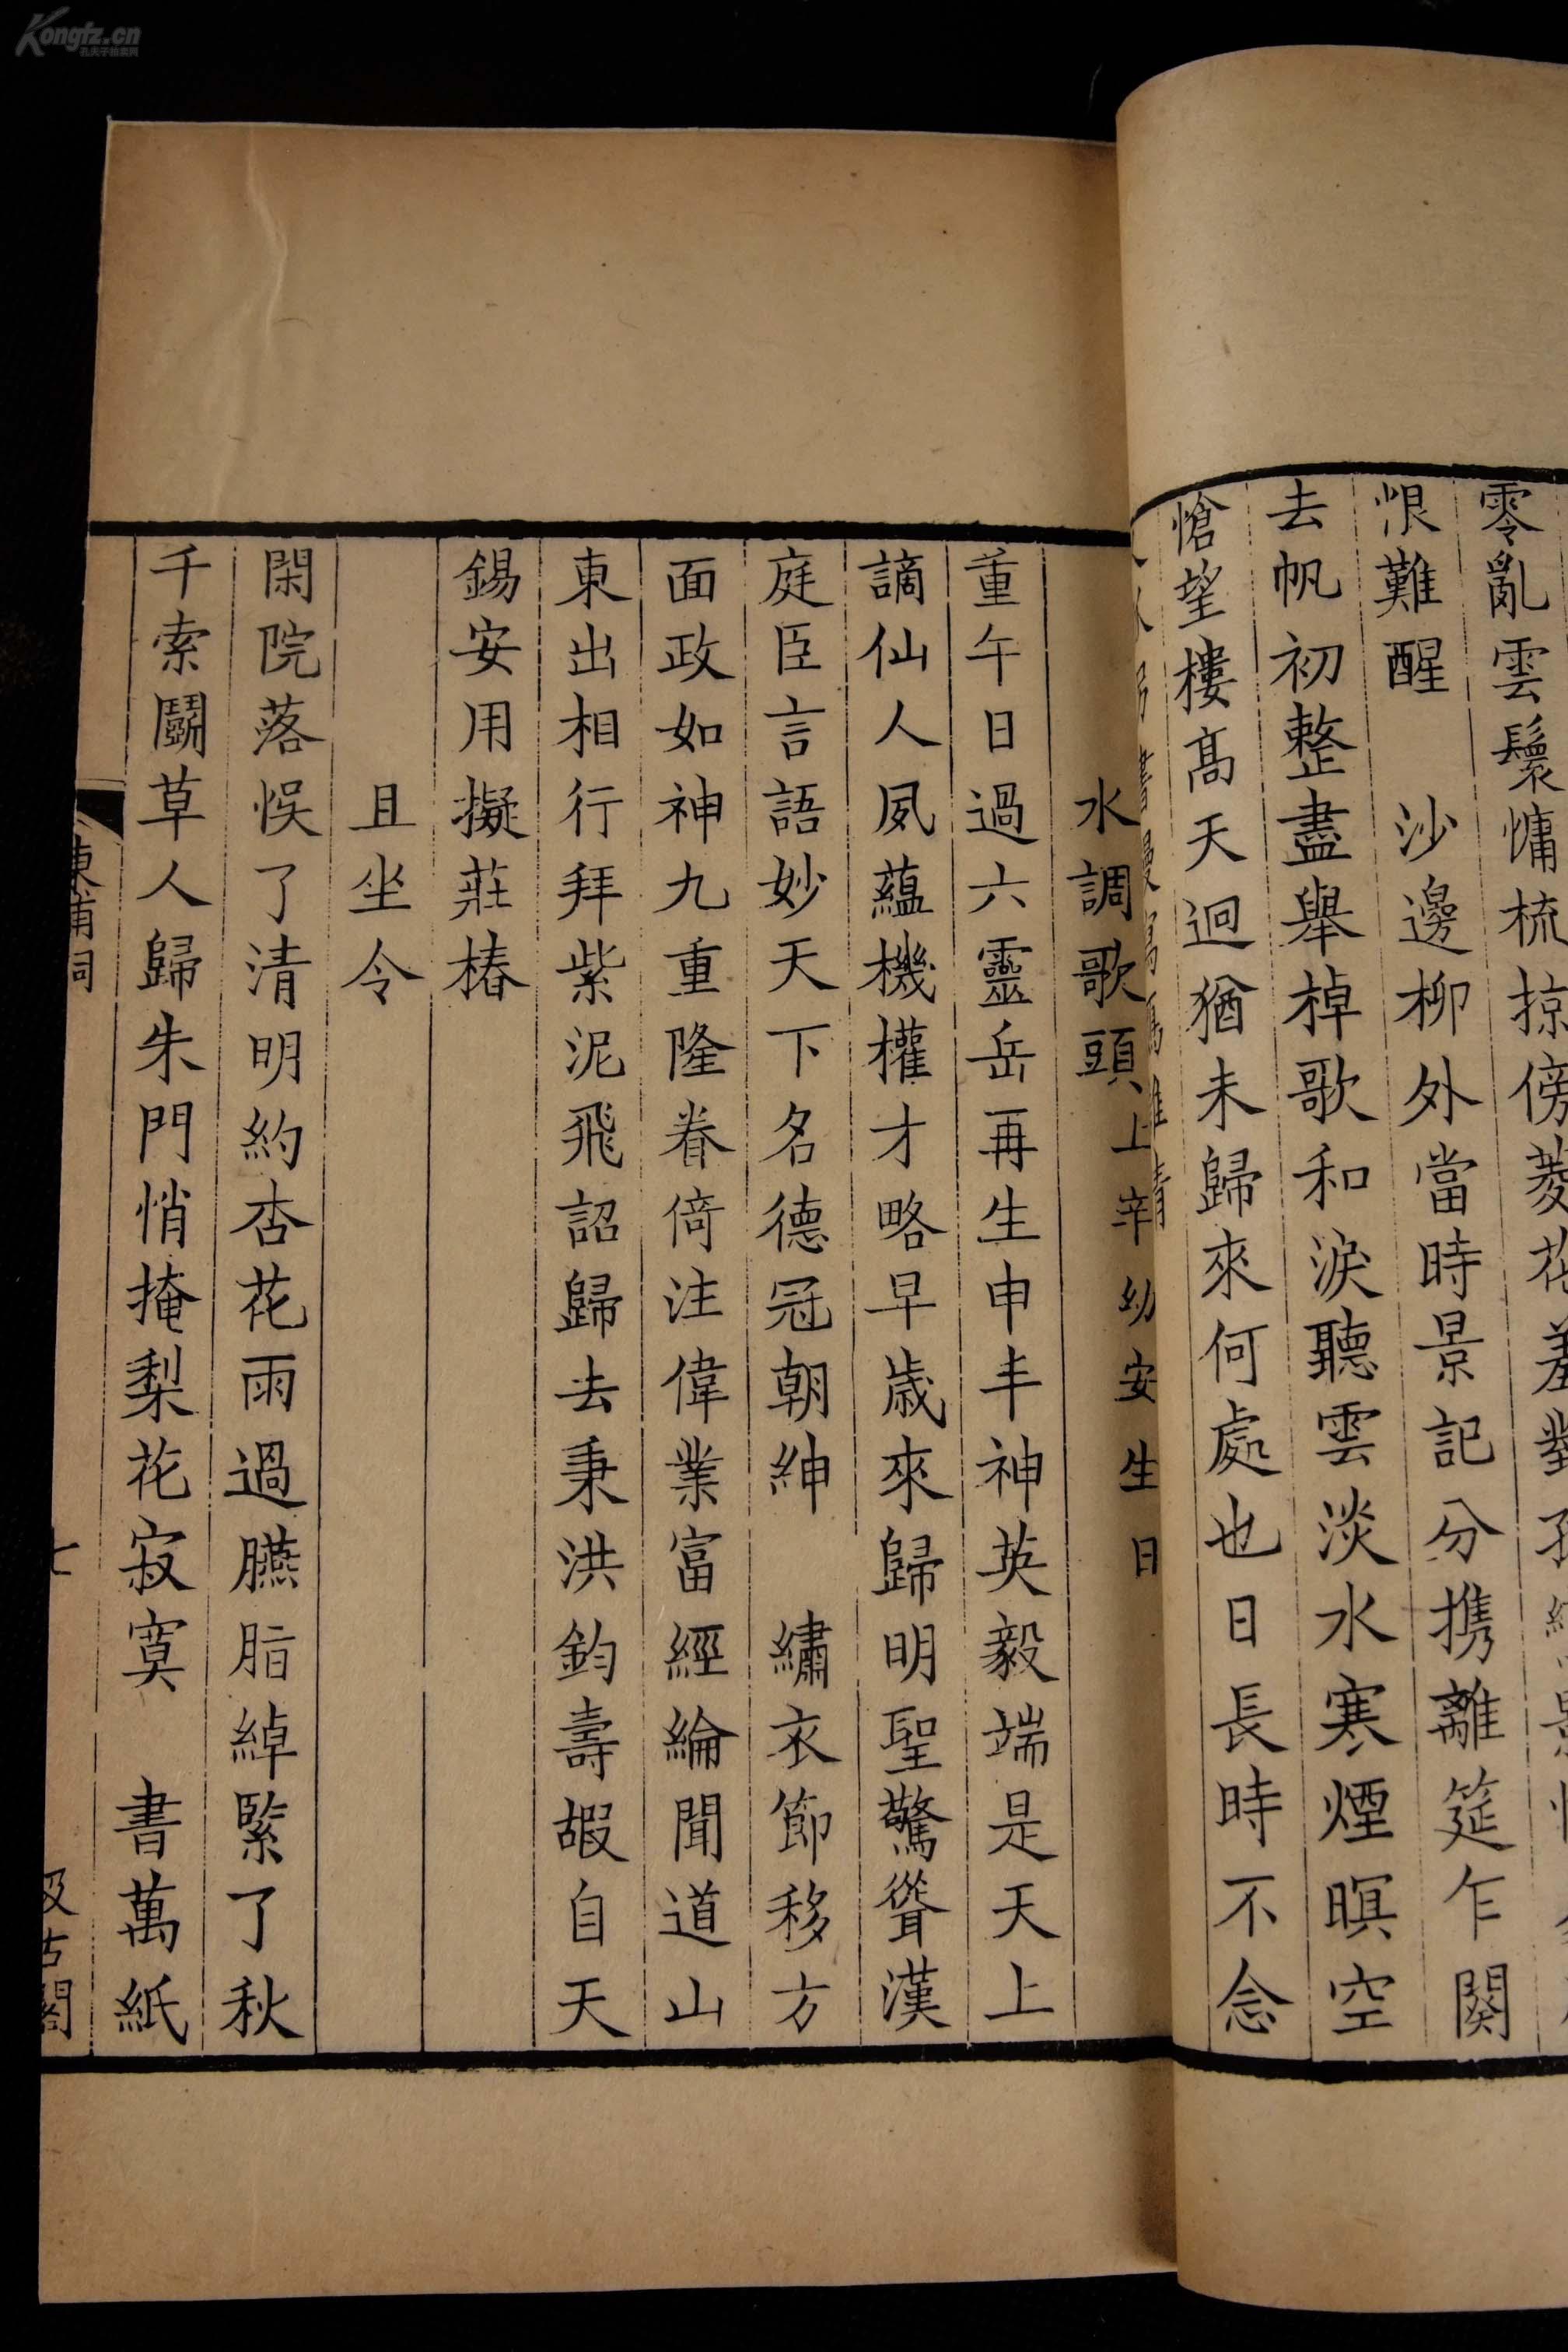 Kongfz.cn
孔夫子拍卖网
零亂雲鬟慵梳掠傍菱花羞對孤
恨難醒　沙邊柳外當時景記分携離筵乍闋
去帆初整盡舉棹歌和淚聽雲淡水寒煙暝空
愴望樓髙天迥猶未歸來何處也日長時不念
水調歌頭上辛幼安生日
重午日過六靈岳再生申丰神英毅端是天上
謫仙人夙蘊機權才略早歲來歸明聖驚聳漢
庭臣言語妙天下名德冠朝紳　繡衣節移方
面政如神九重隆眷倚注偉業富經綸聞道山
東出相行拜紫泥飛詔歸去秉洪鈞壽嘏自天
錫安用擬莊椿
且坐令
閑院落悮了清明約杏花雨過臙脂綽緊了秋
千索鬭草人歸朱門悄掩梨花寂寞　書萬紙
東浦詞
七
汲古閣